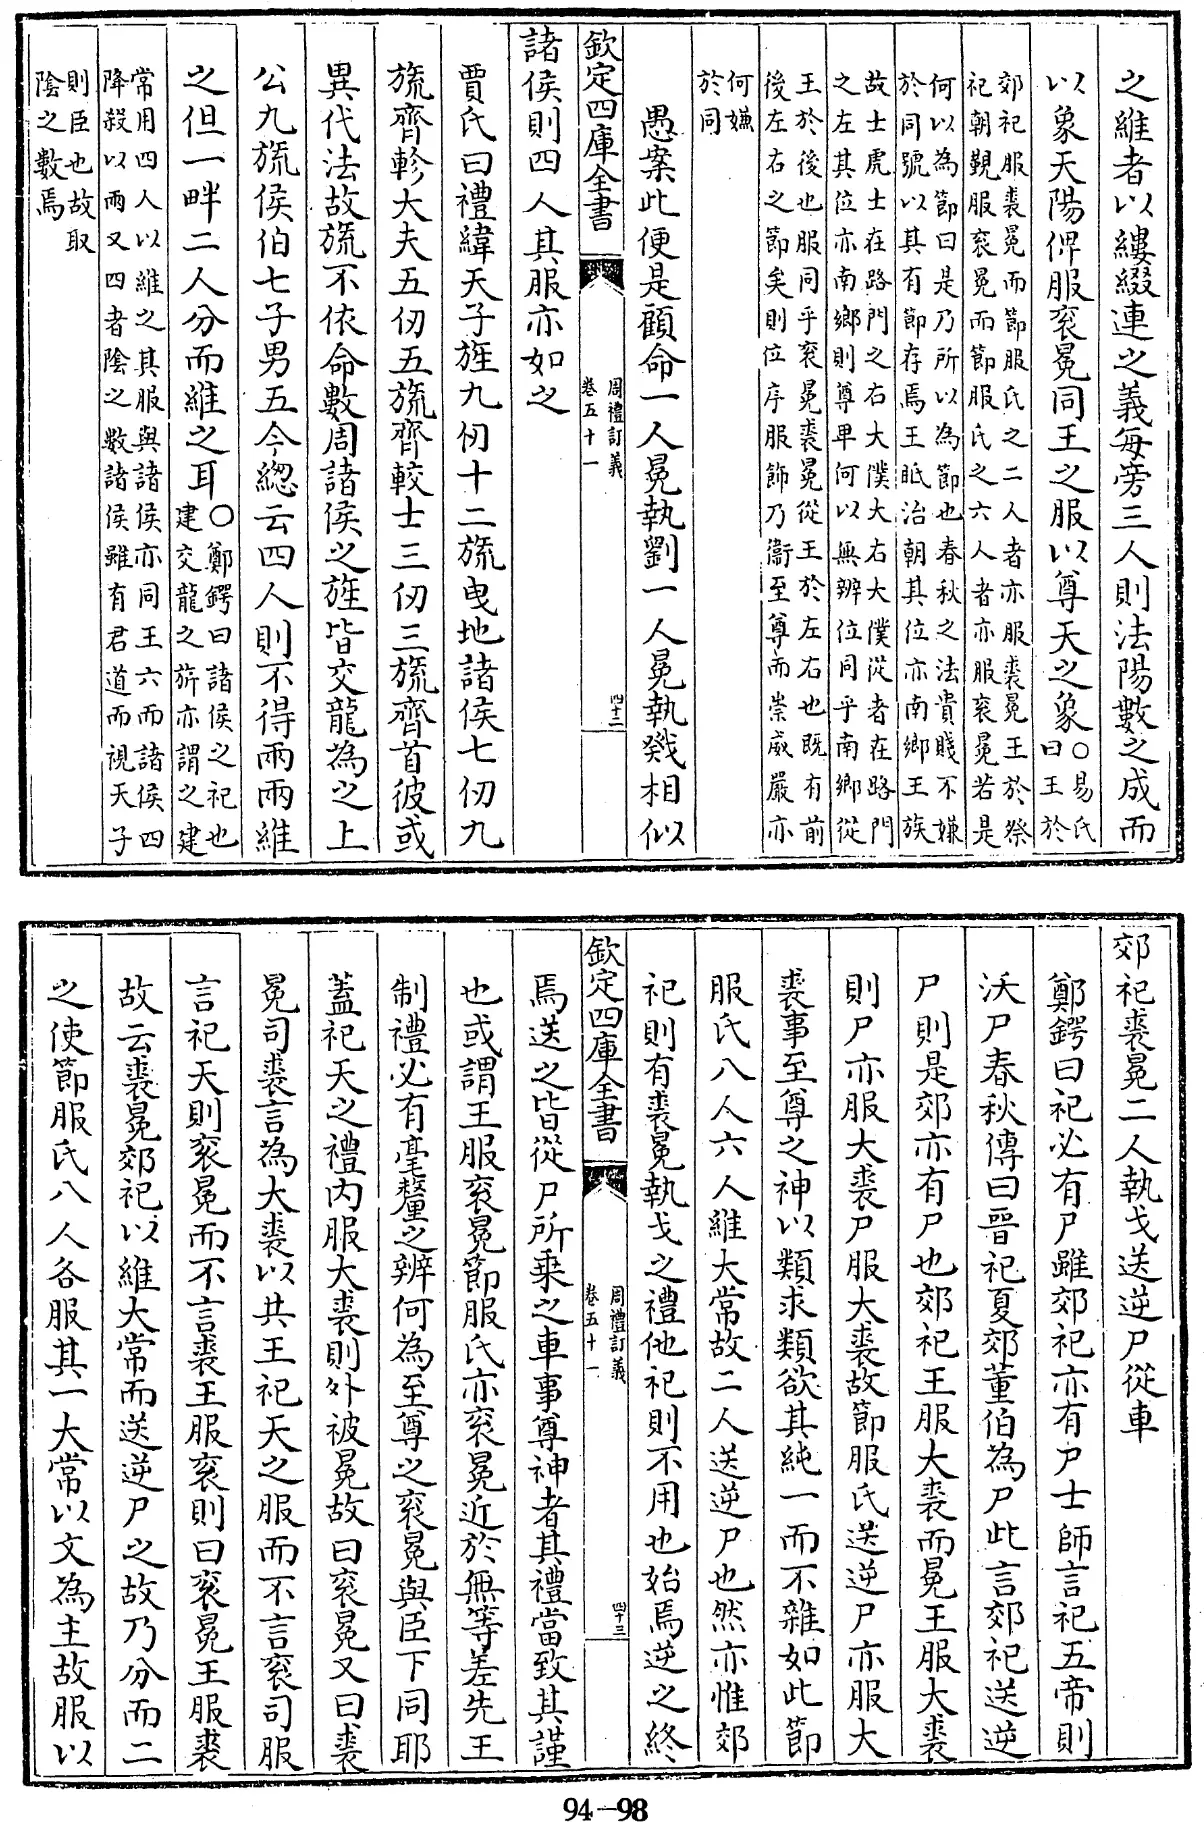 之維者以縷綴連之義每旁三人則法陽數之成而
以象天陽俾服衮冕同王之服以尊天之象○易氏
曰王於
郊祀服裘冕而節服氏之二人者亦服裘冕王於祭
祀朝覲服衮冕而節服氏之六人者亦服衮冕若是
何以為節曰是乃所以為節也春秋之法貴賤不嫌
於同號以其有節存焉王眡治朝其位亦南鄉王族
故士虎士在路門之右大僕大右大僕從者在路門
之左其位亦南鄉則尊卑何以無辨位同乎南鄉從
王於後也服同乎衮冕裘冕從王於左右也既有前
後左右之節矣則位序服飾乃衞至尊而崇威嚴亦
何嫌
於同
愚案此便是顧命一人冕執劉一人冕執戣相似
欽定四庫全書
周禮訂義
卷五十一
四十二
諸侯則四人其服亦如之
賈氏曰禮緯天子旌九仞十二旒曳地諸侯七仞九
旒齊軫大夫五仞五旒齊較士三仞三旒齊首彼或
異代法故旒不依命數周諸侯之旌皆交龍為之上
公九旒侯伯七子男五今總云四人則不得兩兩維
之但一畔二人分而維之耳○鄭鍔曰諸侯之祀也
建交龍之旂亦謂之建
常用四人以維之其服與諸侯亦同王六而諸侯四
降殺以兩又四者陰之數諸侯雖有君道而視天子
則臣也故取
陰之數焉
郊祀裘冕二人執戈送逆尸從車
鄭鍔曰祀必有尸雖郊祀亦有尸士師言祀五帝則
沃尸春秋傳曰晉祀夏郊董伯為尸此言郊祀送逆
尸則是郊亦有尸也郊祀王服大裘而冕王服大裘
則尸亦服大裘尸服大裘故節服氏送逆尸亦服大
裘事至尊之神以類求類欲其純一而不雜如此節
服氏八人六人維大常故二人送逆尸也然亦惟郊
祀則有裘冕執戈之禮他祀則不用也始焉逆之終
欽定四庫全書
周禮訂義
卷五十一
四十三
焉送之皆從尸所乗之車事尊神者其禮當致其謹
也或謂王服衮冕節服氏亦衮冕近於無等差先王
制禮必有毫釐之辨何為至尊之衮冕與臣下同耶
蓋祀天之禮内服大裘則外被冕故曰衮冕又曰裘
冕司裘言為大裘以共王祀天之服而不言衮司服
言祀天則衮冕而不言裘王服衮則曰衮冕王服裘
故云裘冕郊祀以維大常而送逆尸之故乃分而二
之使節服氏八人各服其一大常以文為主故服以
94-98